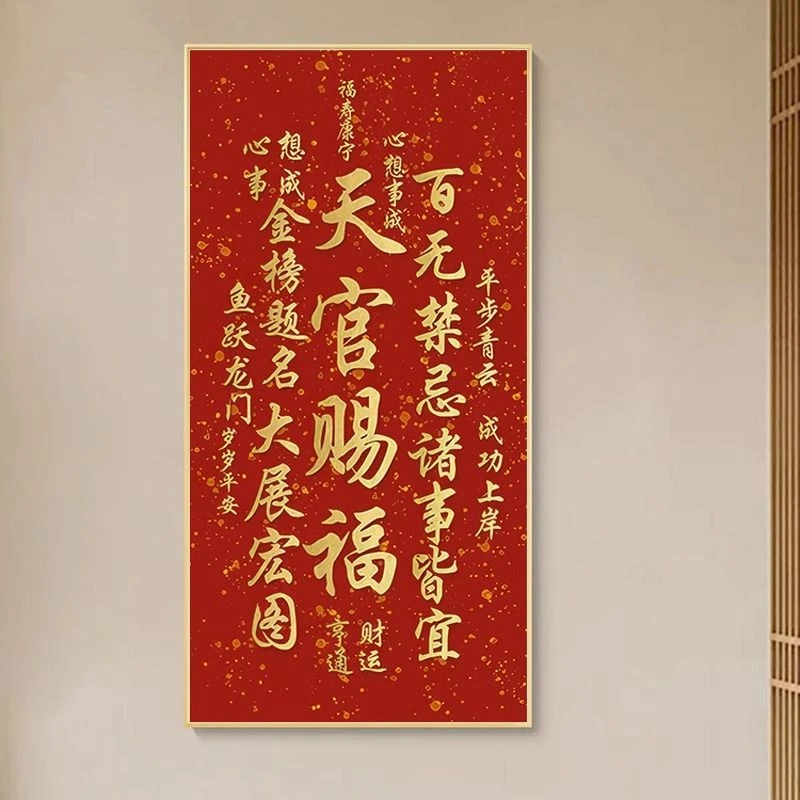 平步青云 成功上岸
百无禁忌诸事皆宜
心想事成
福寿康宁
天官赐福
财运
亨通
想成
心事
金榜题名大展宏图
鱼跃龙门 岁岁平安